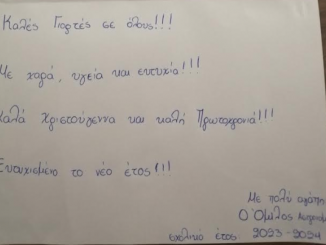 Καλές Γιορτές σε όλους!!!
Με χαρά, υγεία και ευτυχία!!!
Καλά Χριστούγεννα και καλή Πρωτοχρονιά!!!
Ευτυχισμένο το νέο έτος!!!
Με πολύ αγάπη
Ο Όμιλος
σχολικό έτος: 2023-2024